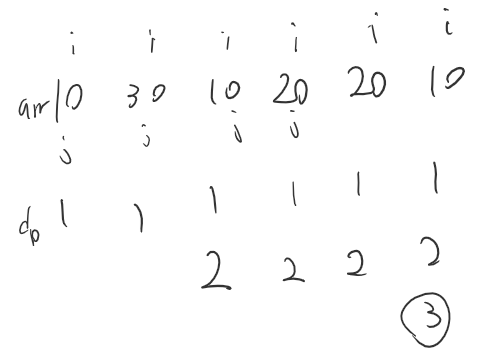 i i i i i i
arr 10 30 10 20 20 10
j j j j
dp 1 1 1 1 1 1
2 2 2 2
3